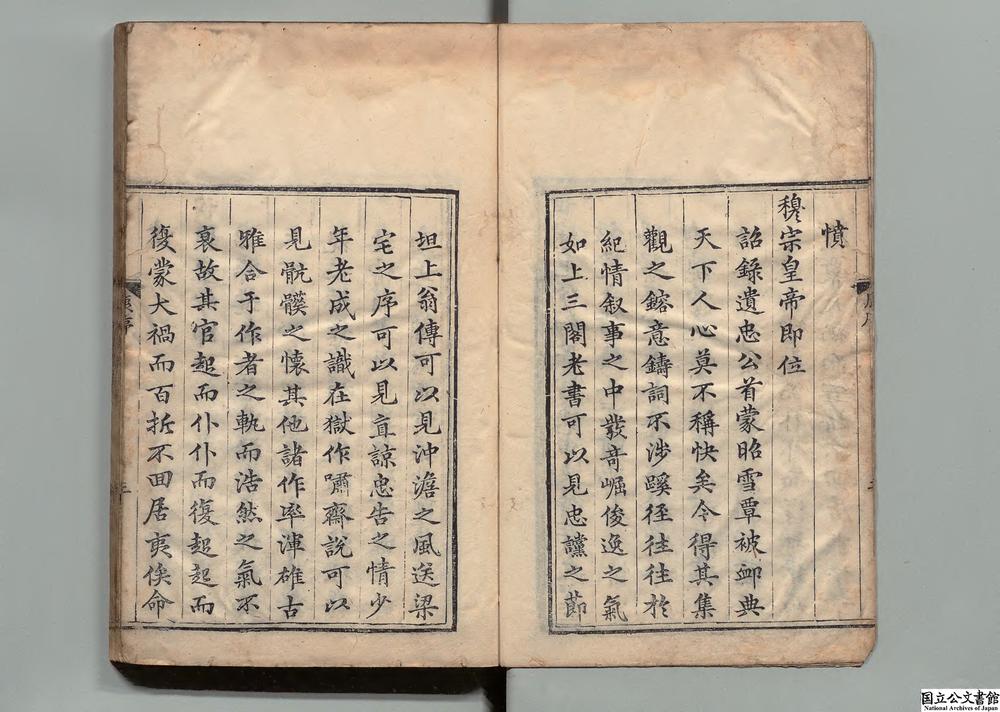 憤
穆宗皇帝即位
詔錄遺忠公首蒙昭雪覃被卹典
天下人心莫不稱快矣今得其集
觀之鎔意鑄詞不涉蹊徑往往於
紀情叙事之中發奇崛俊逸之氣
如上三閣老書可以見忠讜之節
坦上翁傳可以見沖澹之風送梁
宅之序可以見直諒忠告之情少
年老成之識在獄作嘯齋說可以
見骯髒之懷其他諸作率渾雄古
雅合于作者之軌而浩然之氣不
衰故其官起而仆仆而復起起而
復蒙大禍而百折不回居夷俟命
国立公文書館
National Archives of Japan